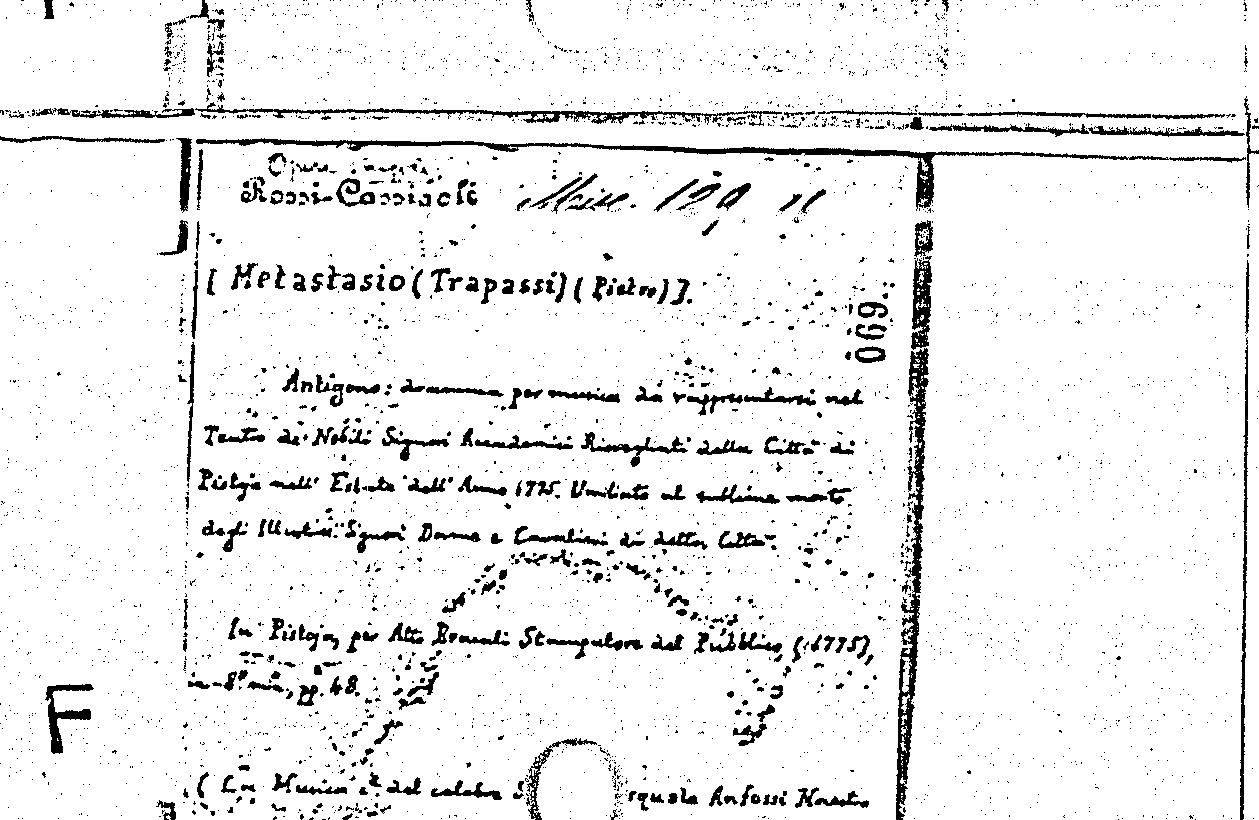 Rossi-Cassigoli Misc. 129, 11
[ Metastasio (Trapassi) (Pietro) ].
069
Antigono: dramma per musica da rappresentarsi nel
Teatro de' Nobili Signori Accademici Risvegliati della Città di
Pistoja nell' Estate dell' Anno 1775. Umiliato al sublime merto
degli Illustriss. Signori Dame e Cavalieri di detta Città.
In Pistoja, per Atto Bracali Stampatore del Pubblico,
in-8° min., pp. 48.
F
( La Musica è del celebre Anfossi Maestro